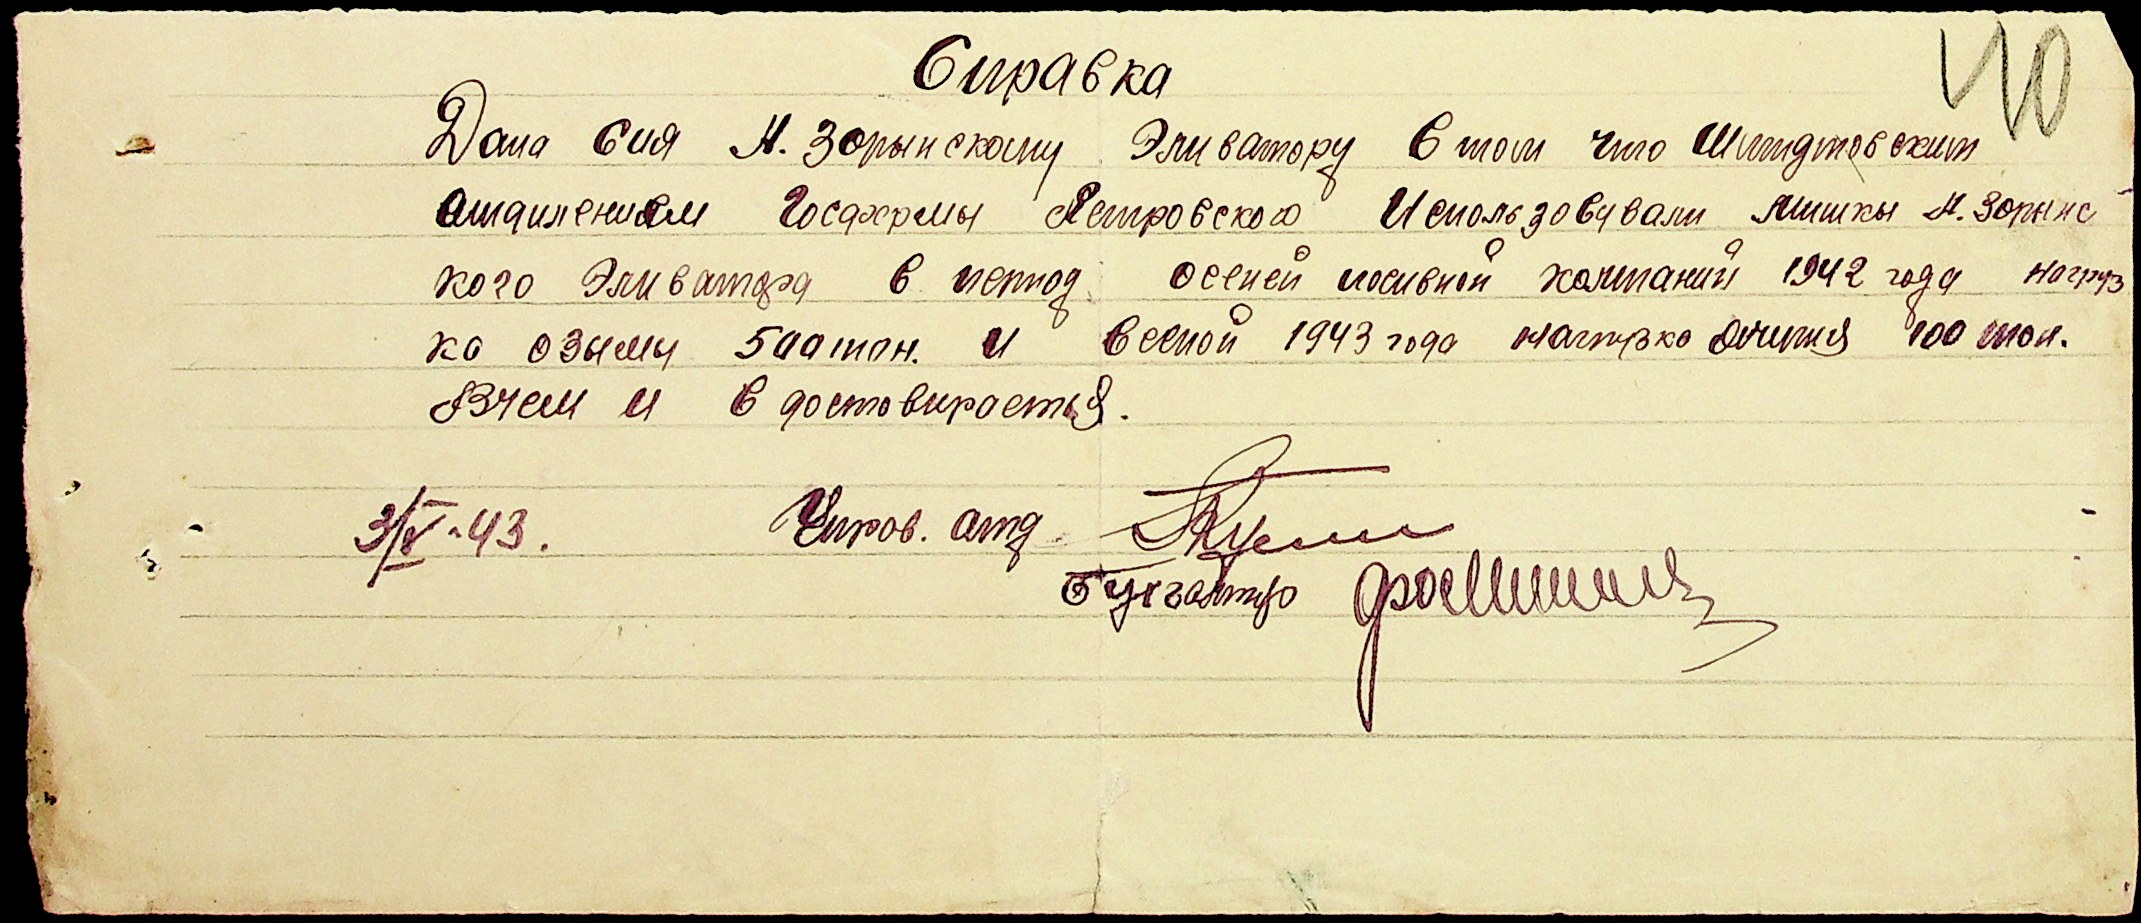 40
Справка
Дана сия Н. Зорынскому Эливатору в том что Шмидтовским
отдилением Госфермы Петровского Использовували мишкы Н. Зорынс
кого Эливатора в период осеней посивной компаний 1942 года нагруз
ка озымы 500 тон. и весной 1943 года нагрузка ячминя 100 тон.
Вчем и вдостовираеться.
3/V-43. Упров. отд
бухгалтир